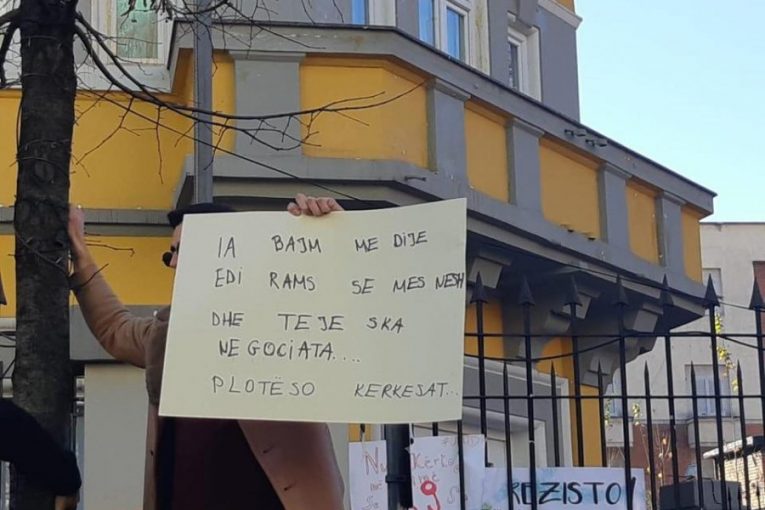 IA BAJM ME DIJE
EDI RAMS SE MES NESH
DHE TEJE SKA
NEGOCIATA....
PLOTËSO KERKESAT...
REZISTO!